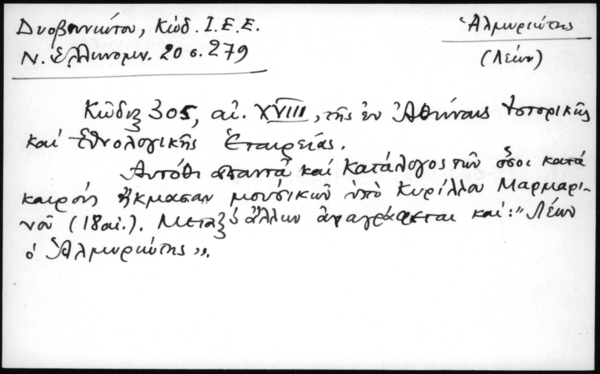 Δυοβουνιώτου, Κώδ. Ι.Ε.Ε.
Ν. Ἑλληνομν. 20 σ. 279
Ἁλμυριώτης
(Λέων)
Κῶδιξ 305, αἰ. XVIII, τῆς ἐν Ἀθήναις Ἱστορικῆς
καὶ Ἐθνολογικῆς Ἑταιρείας.
Αὐτόθι ἀπαντᾶ καὶ κατάλογος τῶν ὅσοι κατὰ
καιροὺς ἤκμασαν μουσικῶν ὑπὸ Κυρίλλου Μαρμαρι-
νοῦ (18 αἰ.). Μεταξὺ ἄλλων ἀναγράφεται καί: "Λέων
ὁ Ἁλμυριώτης".